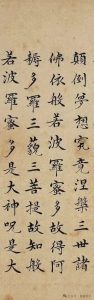 顛倒夢想究竟涅槃三世諸
佛依般若波羅蜜多故得阿
耨多羅三藐三菩提故知般
若波羅蜜多是大神呪是大